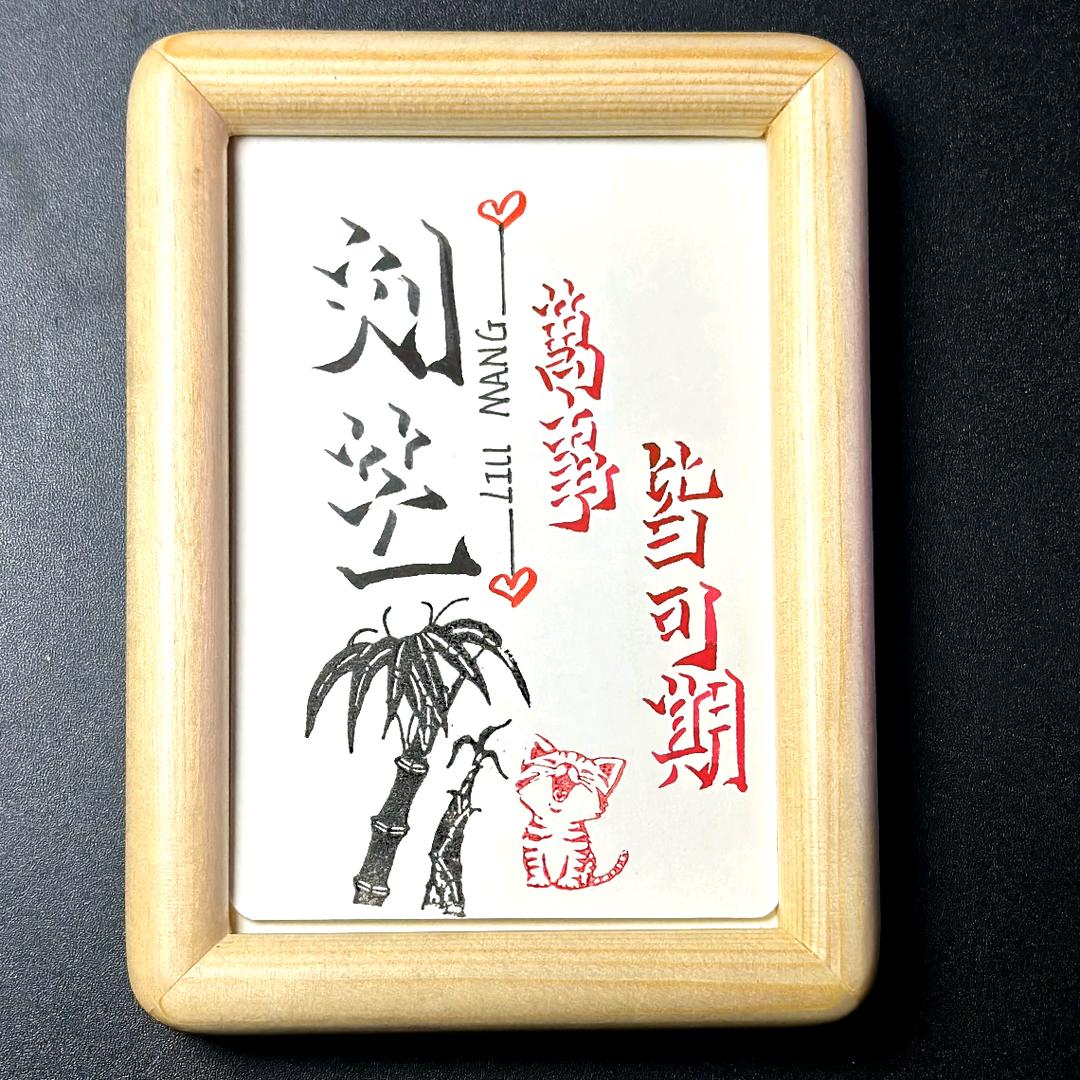 刘笀
LIU MANG
萬事
皆可期